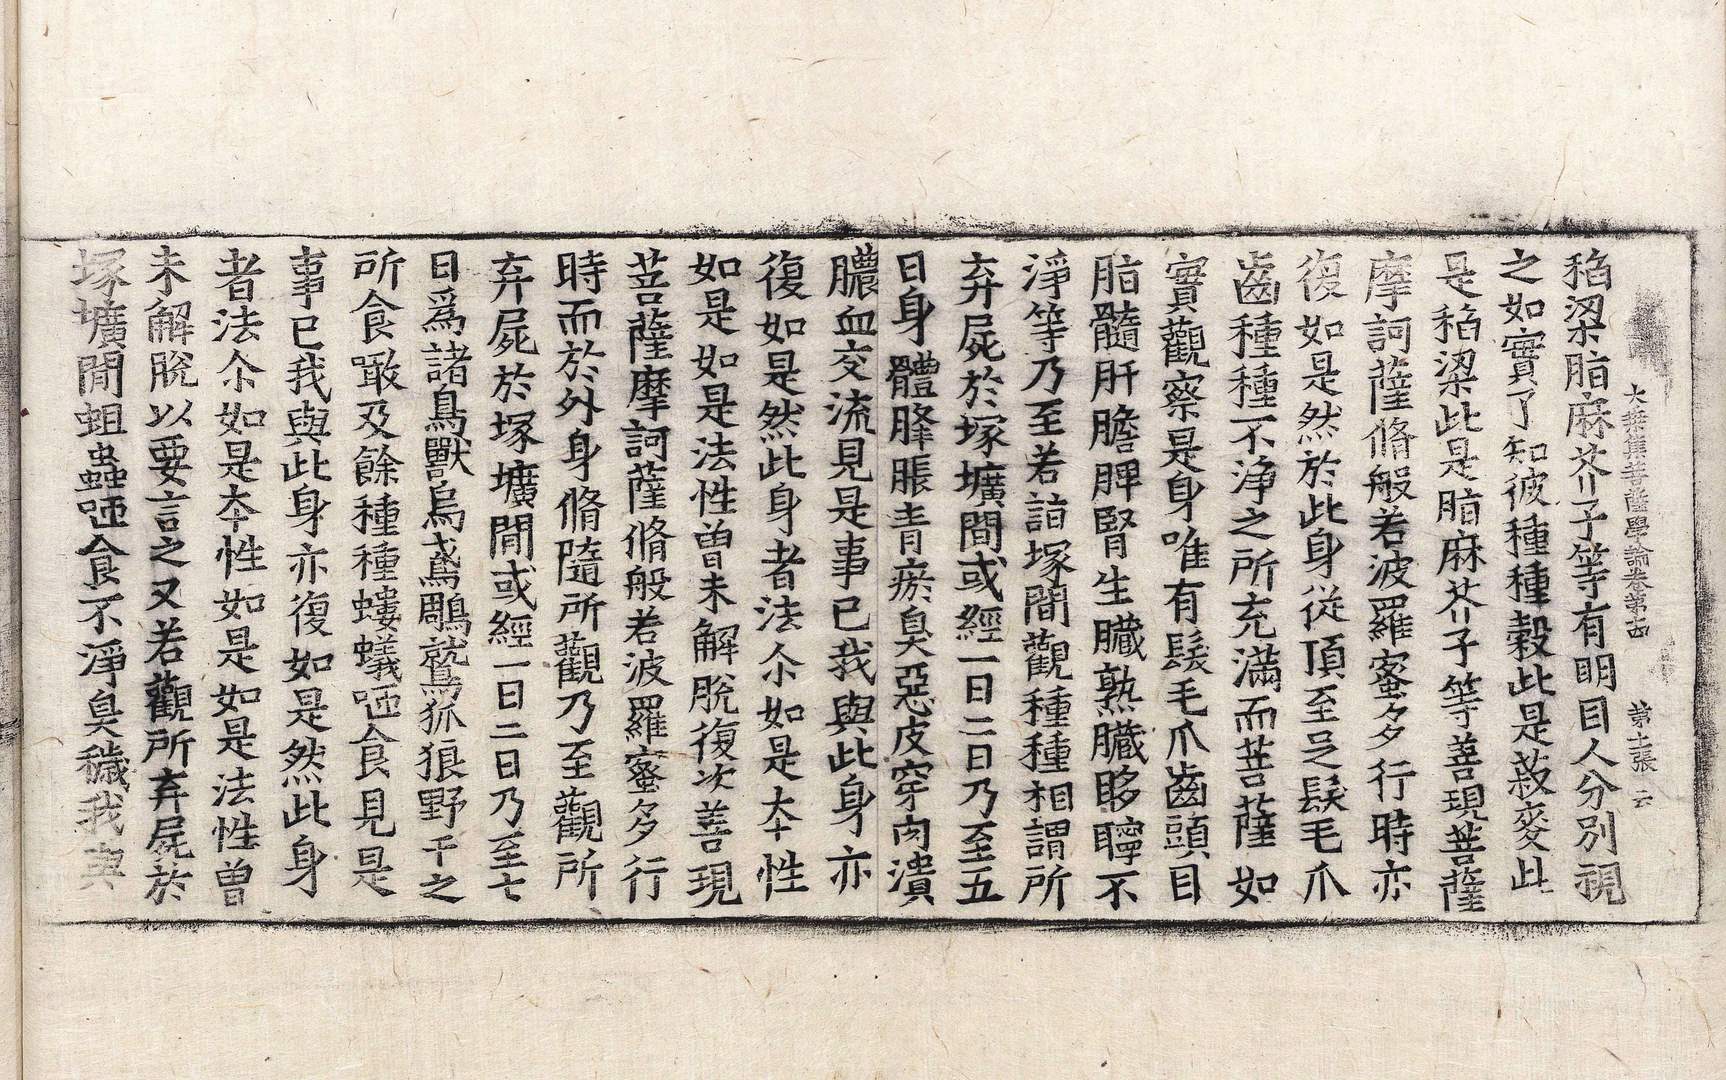 大乗集菩薩學論卷第十四 第十二張 云
稻粱脂麻芥子等有明目人分別視
之如實了知彼種種穀此是菽麥此
是稻粱此是脂麻芥子等善現菩薩
摩訶薩脩般若波羅蜜多行時亦
復如是然於此身從頂至足髮毛爪
齒種種不淨之所充滿而菩薩如
實觀察是身唯有髮毛爪齒頭目
脂髓肝膽脾腎生臟熟臟眵聹不
淨等乃至若詣塚間觀種種相謂所
弃屍於塚壙間或經一日二日乃至五
日身體膖脹青瘀臭惡皮穿肉潰
膿血交流見是事已我與此身亦
復如是然此身者法尒如是本性
如是如是法性曾未解脫復次善現
菩薩摩訶薩脩般若波羅蜜多行
時而於外身脩隨所觀乃至觀所
弃屍於塚壙間或經一日二日乃至七
日爲諸鳥獸烏鳶鵰鷲狐狼野干之
所食噉及餘種種螻蟻咂食見是
事已我與此身亦復如是然此身
者法尒如是本性如是如是法性曾
未解脫以要言之又若觀所弃屍於
塚壙間蛆蟲咂食不淨臭穢我與